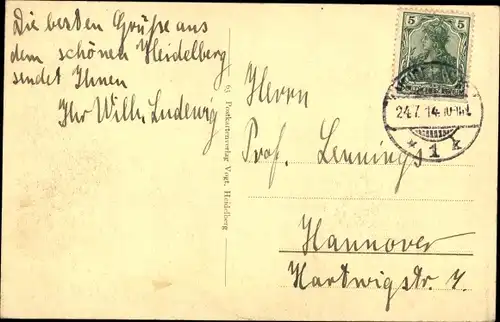 Die besten Grüße aus
dem schönen Heidelberg
sendet Ihnen
Ihr Wilh. Ludewig
63 Postkartenverlag Vogt, Heidelberg
5 5
24.7.14
* 1 k
Herrn
Prof. Lennings
Hannover
Hartwigstr. 7.